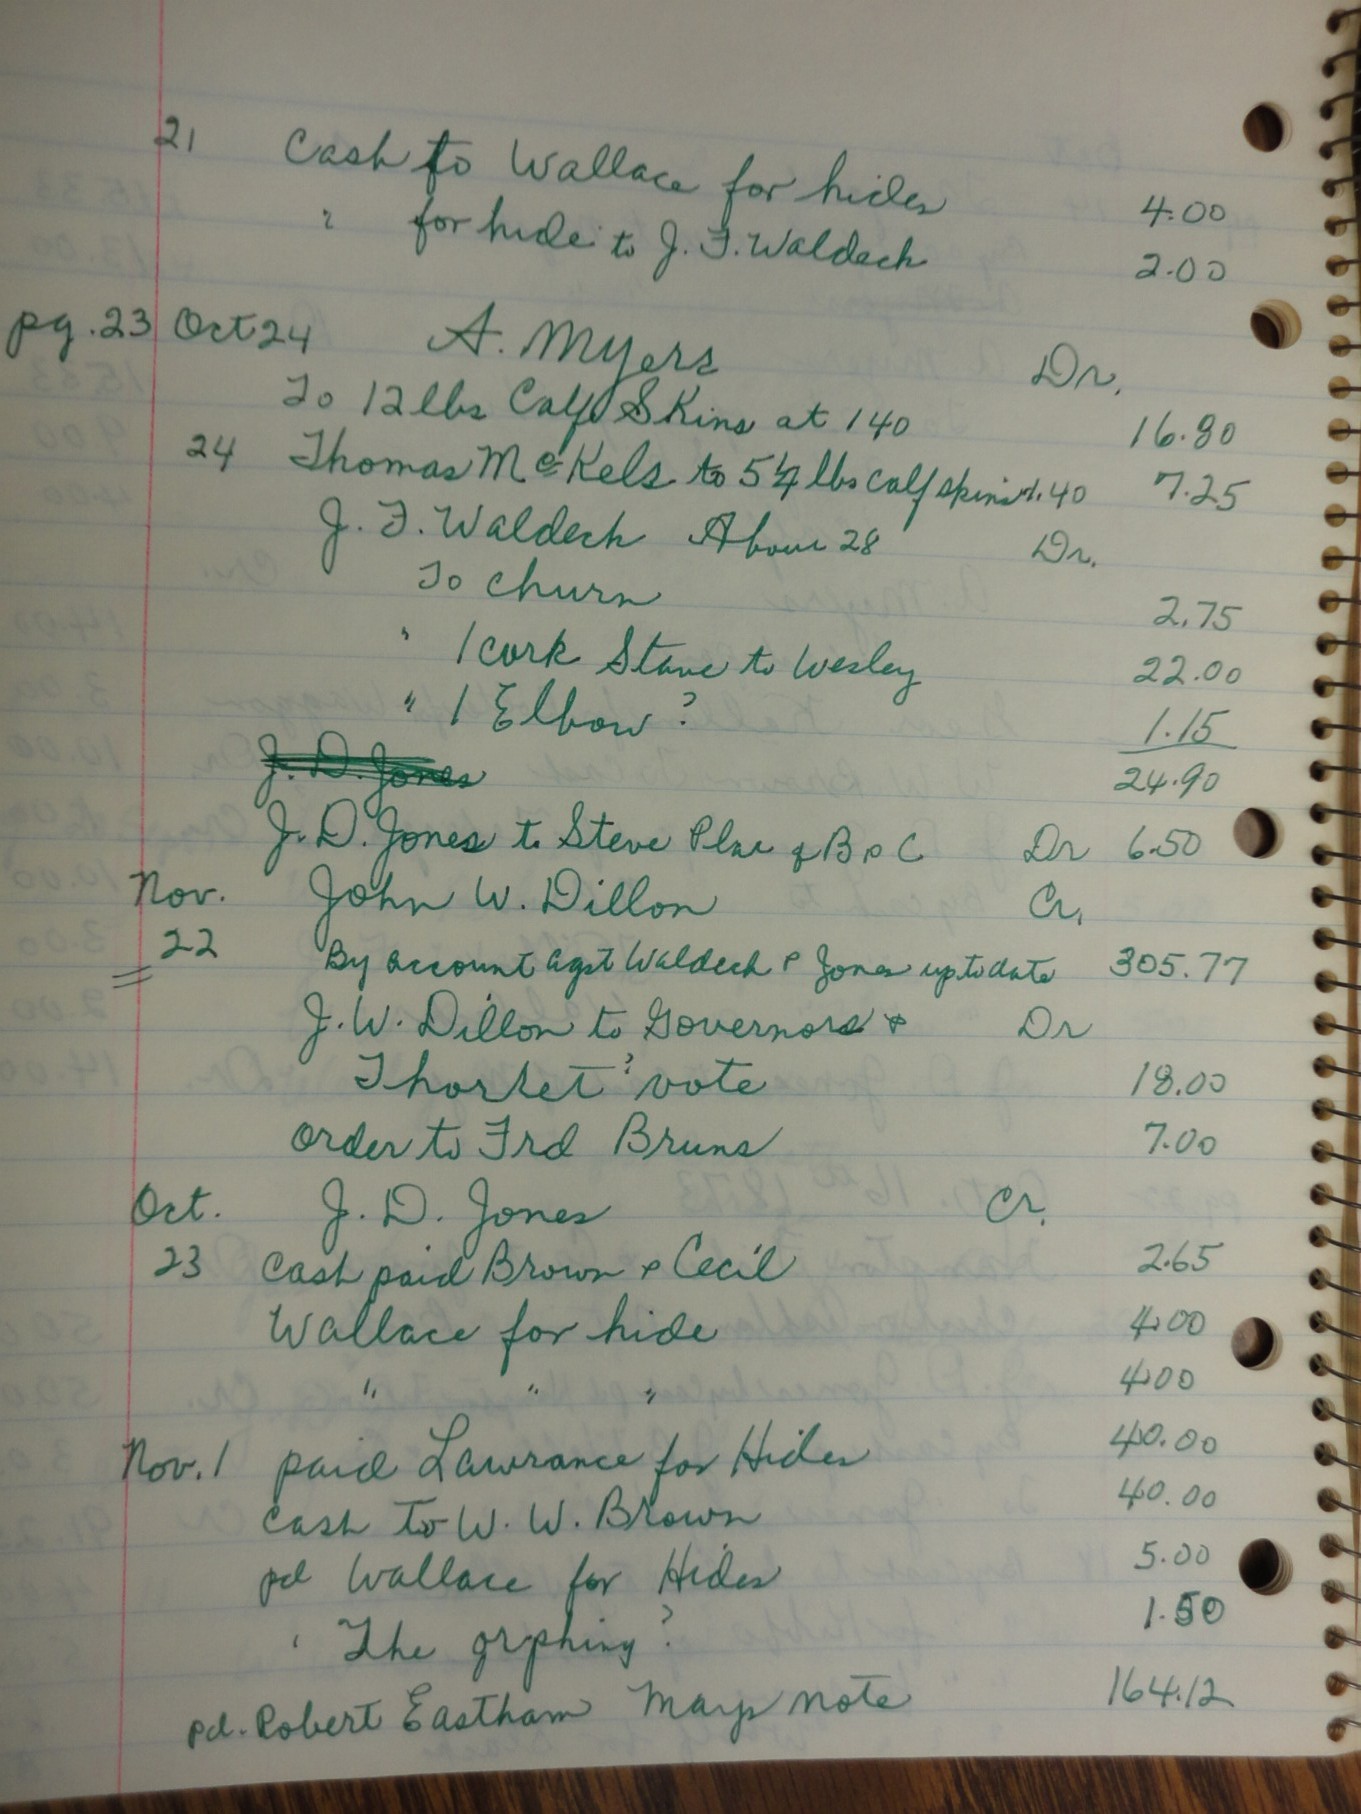 21 Cash to Wallace for hides 4.00
" for hide to J. F. Waldeck 2.00
pg. 23 Oct 24 A. Myers Dr.
To 12 lbs Calf Skins at 140 16.80
24 Thomas McKels to 5 1/4 lbs calf skins 1.40 7.25
J. F. Waldeck About 28 Dr.
To churn 2.75
" 1 cork Stave to Wesley 22.00
" 1 Elbow ? 1.15
24.90
J. D. Jones
J. D. Jones to Steve Plac & B & C Dr 6.50
Nov. John W. Dillon Cr.
22 By account agst Waldeck & Jones up to date 305.77
J. W. Dillon to Governors & Dr
Thorket ? vote 18.00
order to Frd Bruns 7.00
Oct. J. D. Jones Cr.
23 Cash paid Brown & Cecil 2.65
Wallace for hide 4.00
" " " 4.00
Nov. 1 paid Lawrance for Hides 40.00
Cash to W. W. Brown 40.00
pd Wallace for Hides 5.00
" The grphing ? 1.50
pd. Robert Eastham Mays note 164.12